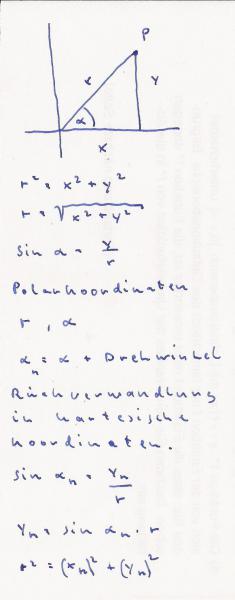 P
r
y
α
x
r² = x² + y²
r = √x² + y²
sin α = y/r
Polarkoordinaten
r, α
αn = α + Drehwinkel
Rückverwandlung
in kartesische
Koordinaten.
sin αn = yn/r
yn = sin αn · r
r² = (xn)² + (yn)²